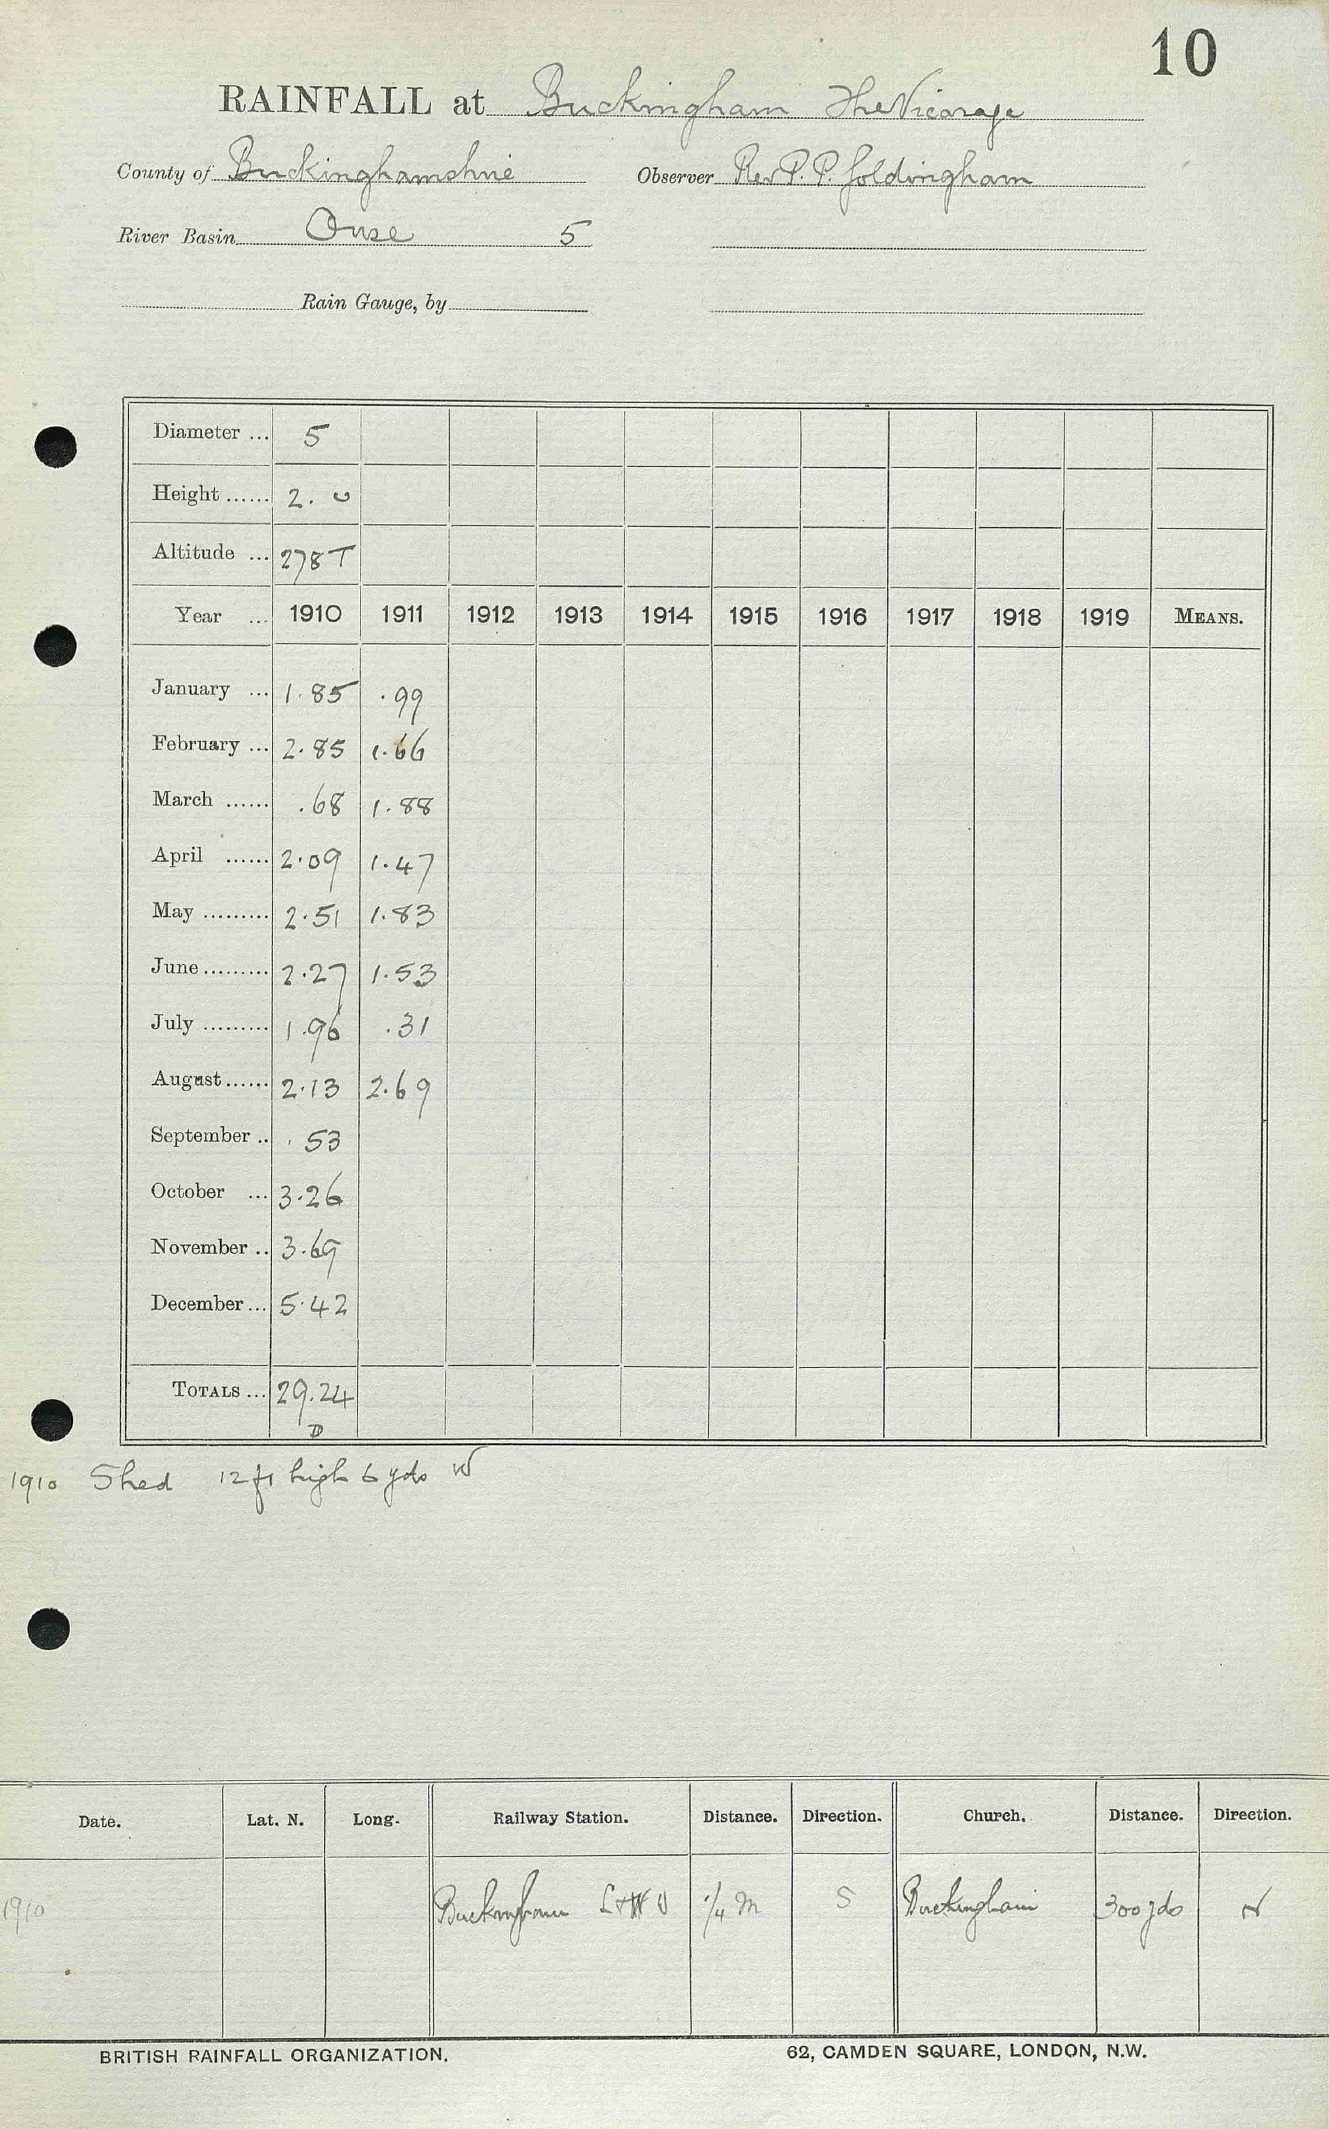 10
RAINFALL at Buckingham The Vicarage
County of Buckinghamshire Observer Rev P. P. Goldingham
River Basin Ouse 5
Rain Gauge, by
Diameter ... 5
Height ...... 2. 0
Altitude ... 278 T
Year ... 1910 1911 1912 1913 1914 1915 1916 1917 1918 1919 MEANS.
January ... 1.85 .99
February ... 2.85 1.66
March ...... .68 1.88
April ...... 2.09 1.47
May ......... 2.51 1.83
June ......... 2.27 1.53
July ......... 1.96 .31
August ...... 2.13 2.69
September .. .53
October ... 3.26
November .. 3.69
December ... 5.42
TOTALS ... 29.24
D
1910 Shed 12 ft high 6 yds W
Date. Lat. N. Long. Railway Station. Distance. Direction. Church. Distance. Direction.
1910 Buckingham 1/4 m S Buckingham 300 yds N
BRITISH RAINFALL ORGANIZATION. 62, CAMDEN SQUARE, LONDON, N.W.